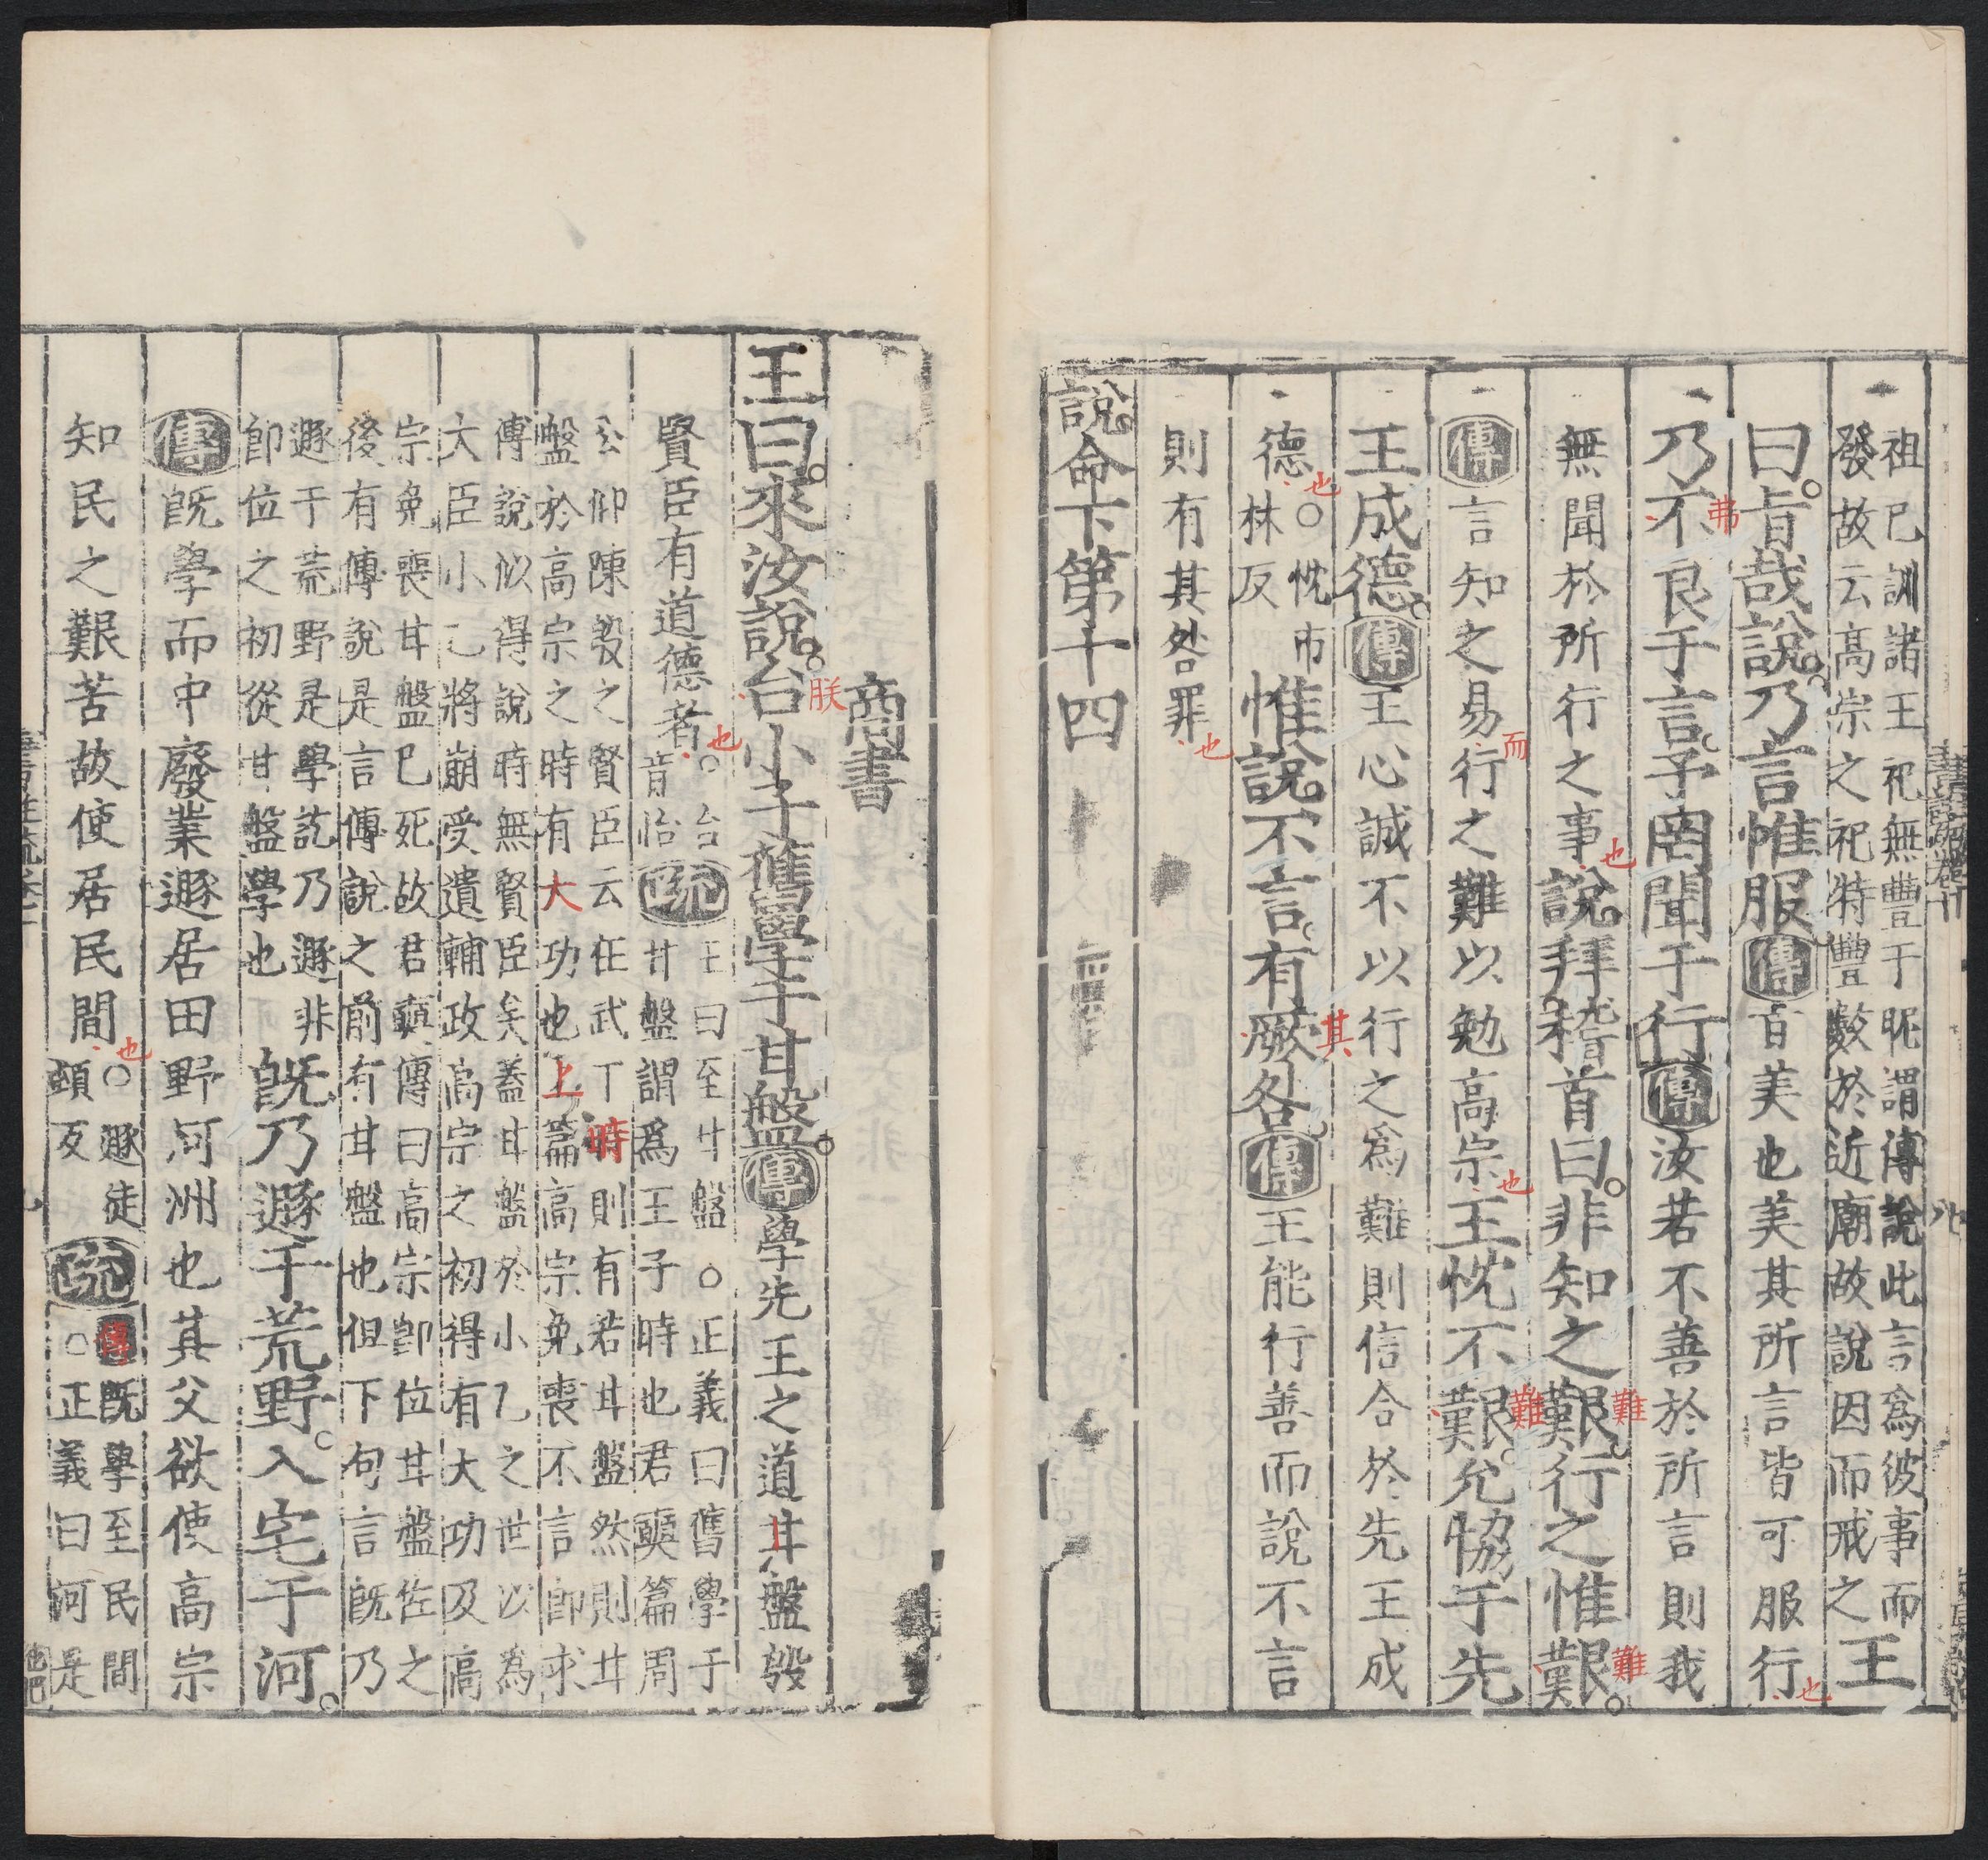 祖已訓諸王祀無豐于昵謂傅說此言爲彼事而
發故云高宗之祀特豐數於近廟故說因而戒之王
曰旨哉說乃言惟服傳百美也美其所言皆可服行也
乃不弗良于言予罔聞于行傳汝若不善於所言則我
無聞於所行之事也說拜稽首曰非知之艱難行之惟艱難
傳言知之易而行之難以勉高宗也王忱不艱難允協于先
王成德傳王心誠不以行之爲難則信合於先王成
德也○忱市
林反惟說不言有厥其咎傳王能行善而說不言
則有其咎罪也
說命下第十四
商書
王曰來汝說台朕小子舊學于甘盤傳學先王之道甘盤殷
賢臣有道德者也○台
音怡疏王曰至甘盤○正義曰舊學于
甘盤謂爲王子時也君奭篇周
公仰陳殷之賢臣云在武丁時則有若甘盤然則甘
盤於高宗之時有大功也上篇高宗免喪不言即求
傅說似得說時無賢臣矣蓋甘盤於小乙之世以為
大臣小乙將崩受遺輔政高宗之初得有大功及高
宗免喪甘盤已死故君奭傳曰高宗即位甘盤佐之
後有傅說是言傅說之前有甘盤也但下句言既乃
遯于荒野是學訖乃遯非
即位之初從甘盤學也既乃遯于荒野入宅于河
傳既學而中廢業遯居田野河洲也其父欲使高宗
知民之艱苦故使居民間也○遯徒
頓反疏傳既學至民間
○正義曰河是